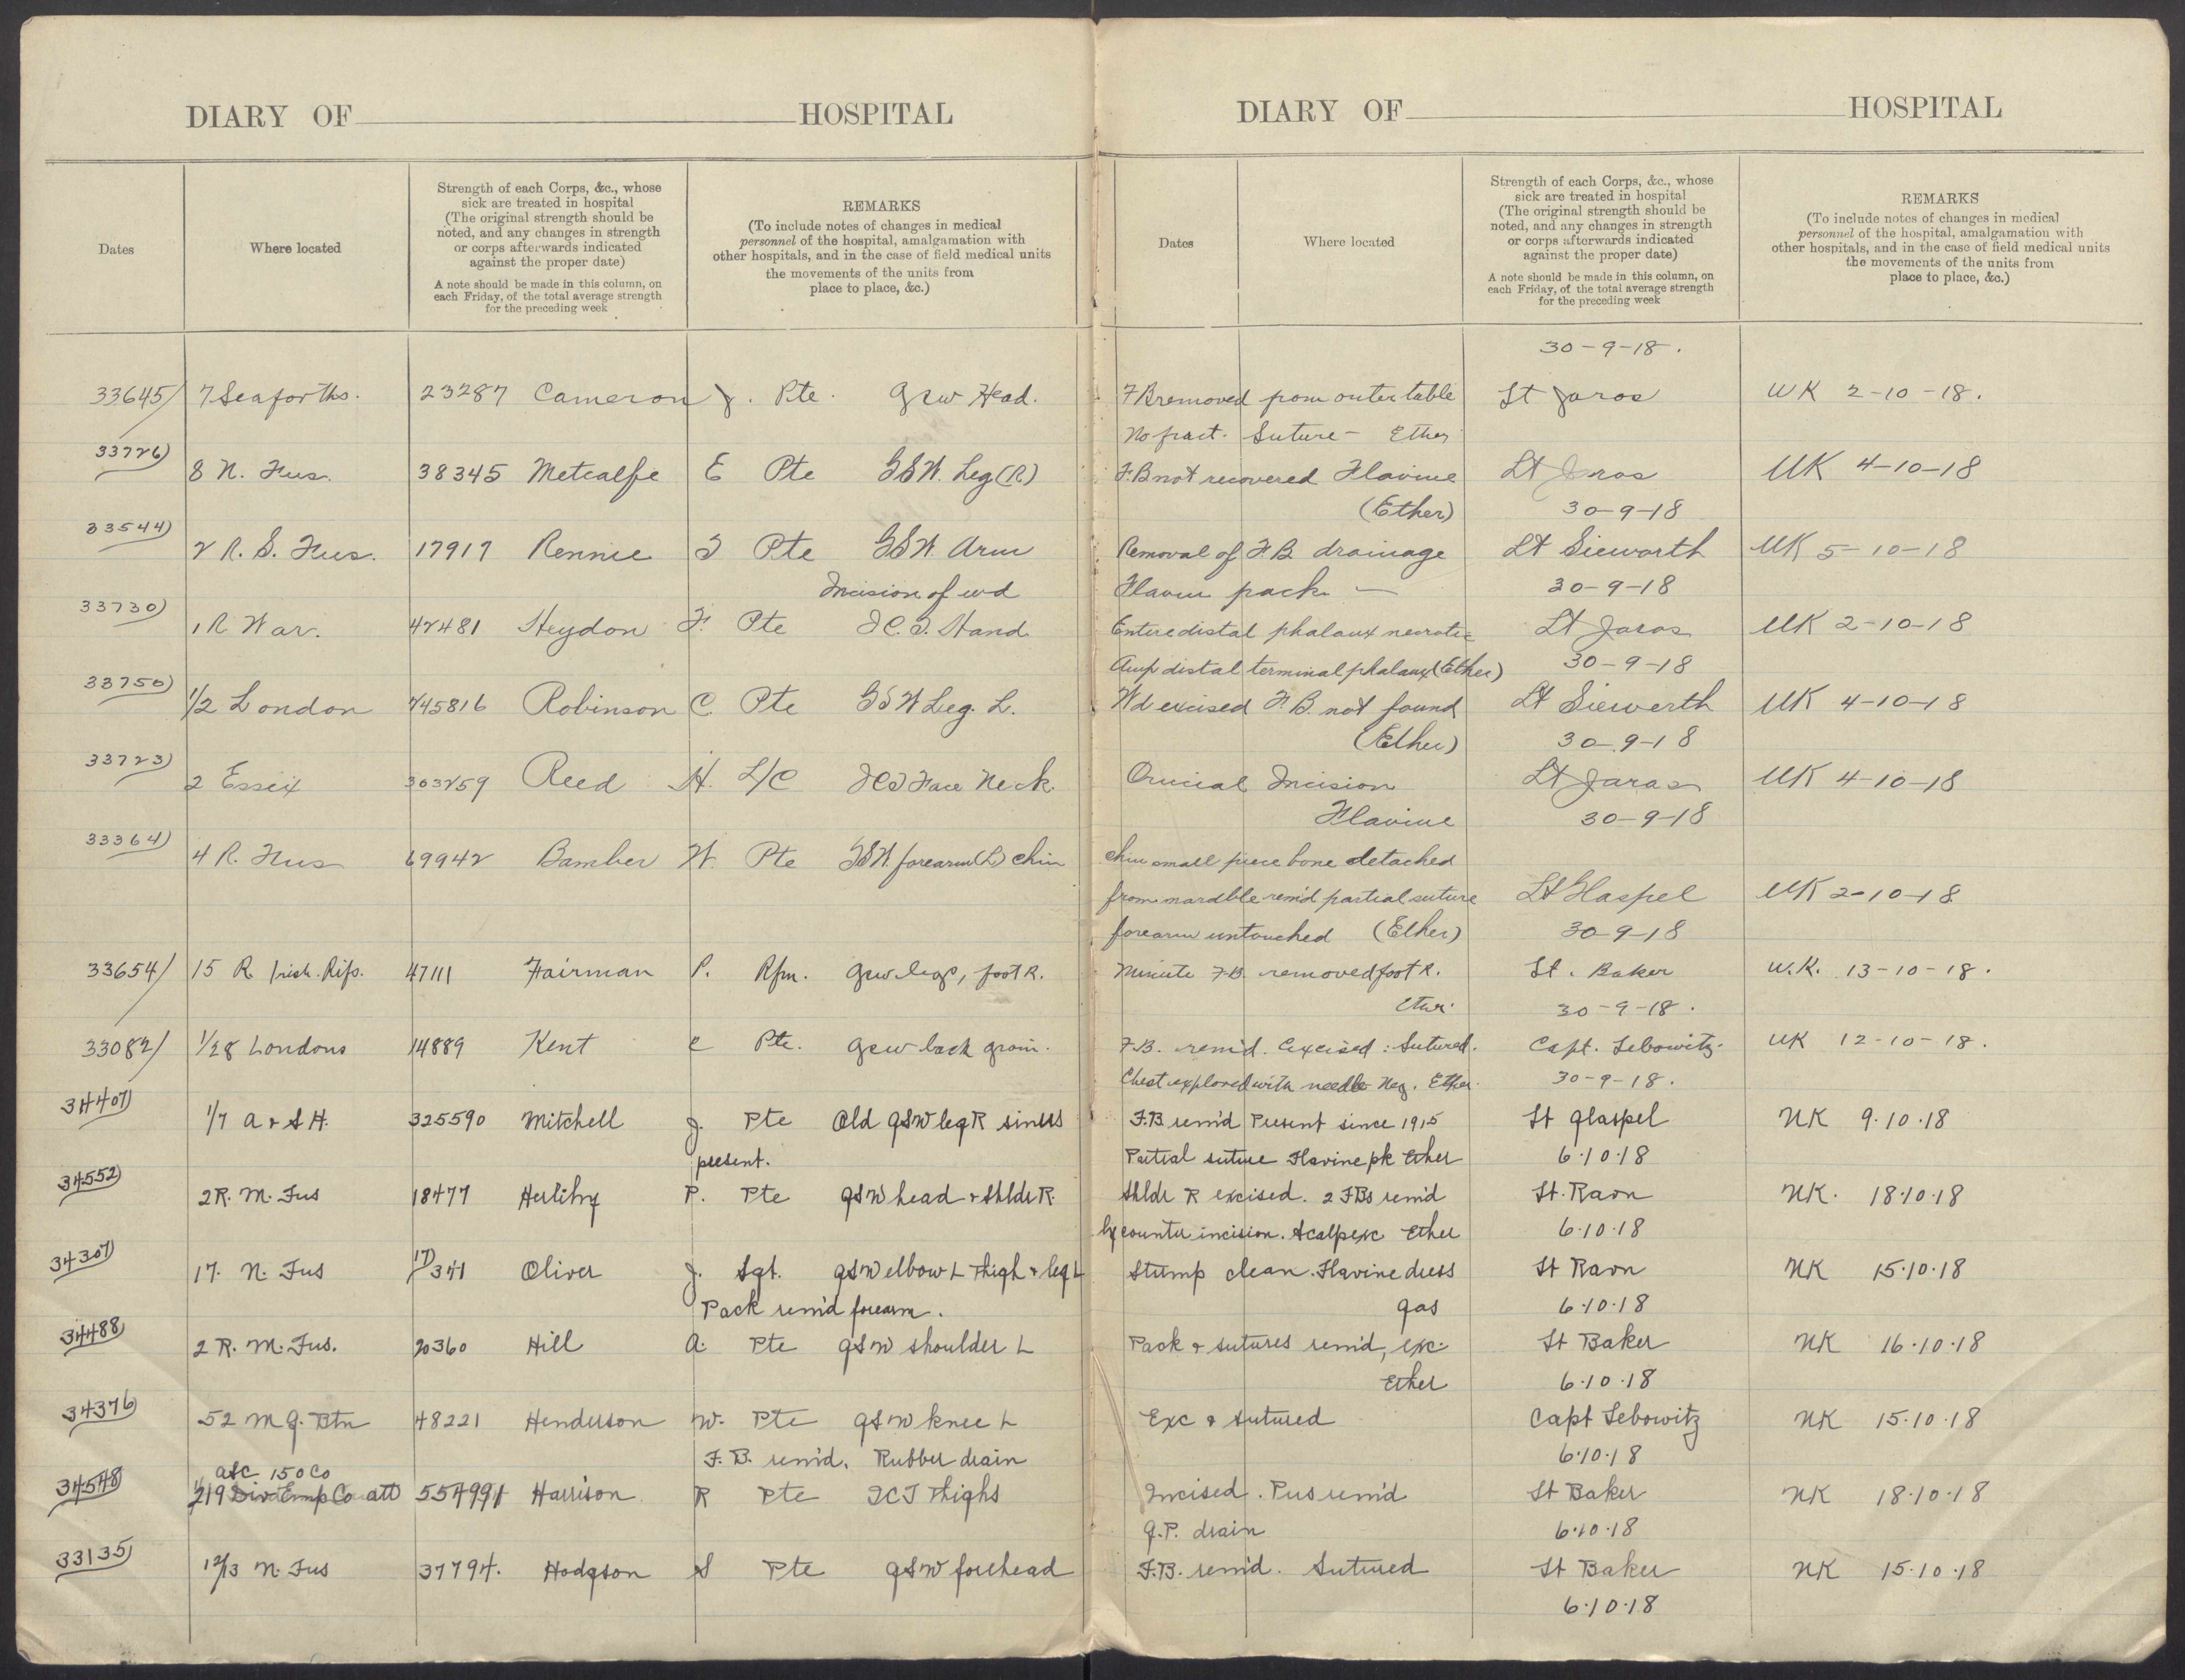 DIARY OF HOSPITAL
Dates
Where located
Strength of each Corps, &c., whose
sick are treated in hospital
(The original strength should be
noted, and any changes in strength
or corps afterwards indicated
against the proper date)
A note should be made in this column, on
each Friday, of the total average strength
for the preceding week
REMARKS
(To include notes of changes in medical
personnel of the hospital, amalgamation with
other hospitals, and in the case of field medical units
the movements of the units from
place to place, &c.)
DIARY OF HOSPITAL
Dates
Where located
Strength of each Corps, &c., whose
sick are treated in hospital
(The original strength should be
noted, and any changes in strength
or corps afterwards indicated
against the proper date)
A note should be made in this column, on
each Friday, of the total average strength
for the preceding week
REMARKS
(To include notes of changes in medical
personnel of the hospital, amalgamation with
other hospitals, and in the case of field medical units
the movements of the units from
place to place, &c.)
30-9-18.
33645/ 7 Seaforths. 23287 Cameron J. Pte. Gsw Head. FB removed from outer table Lt Jaros UK 2-10-18.
No fract. Suture - Ether
33726) 8 N. Fus. 38345 Metcalfe E Pte GSW. Leg (R) F.B not recovered Flavine Lt Jaros UK 4-10-18
(Ether) 30-9-18
33544) 2 R. S. Fus. 17917 Rennie J Pte GSW Arm Removal of F.B. drainage Lt Sieworth UK 5-10-18
Incision of wd Flavin pack - 30-9-18
33730) 1 R War. 42481 Heydon F. Pte I.C.T. Hand Entire distal phalanx necrotic Lt Jaros UK 2-10-18
Amp distal terminal phalanx (Ether) 30-9-18
33750) 1/2 London 745816 Robinson C. Pte GSW Leg. L. Wd excised F.B. not found Lt Sieworth UK 4-10-18
(Ether) 30-9-18
33723) 2 Essex 303259 Reed H. L/C ICT Face Neck Crucial Incision Lt Jaros UK 4-10-18
Flavine 30-9-18
33364) 4 R. Fus 69942 Bamber W. Pte GSW forearm (L) chin chin small piece bone detached
from mandble rem'd partial suture Lt Glaspel UK 2-10-18
forearm untouched (Ether) 30-9-18
33654/ 15 R Irish. Rifs. 47111 Fairman P. Rfm. Gsw legs, foot R. Minute F.B. removed foot R. Lt. Baker U.K. 13-10-18.
Ether. 30-9-18.
33082/ 1/28 Londons 14889 Kent C Pte. Gsw back groin. F.B. rem'd. Excised: Sutured. Capt. Lebowitz. UK 12-10-18.
Chest explored with needle Neg. Ether. 30-9-18.
34407) 1/7 A & S H. 325590 Mitchell J. Pte Old GSW leg R sinus F.B rem'd Present since 1915 Lt Glaspel UK 9.10.18
present. Partial suture Flavine pk Ether 6.10.18
34552) 2 R. M. Fus 18477 Herlihy P. Pte GSW head & Shldr R. Shldr R excised. 2 FBs rem'd Lt. Ravn UK. 18.10.18
by counter incision. Scalp exc Ether 6.10.18
34307) 17. N. Fus 17/341 Oliver J. Sgt. GSW elbow L Thigh & leg L Stump clean. Flavine dress Lt Ravn UK 15.10.18
Pack rem'd forearm. gas 6.10.18
34488) 2 R. M. Fus. 20360 Hill A. Pte GSW shoulder L Pack & sutures rem'd, exc. Lt Baker UK 16.10.18
Ether 6.10.18
34376) 52 M G. Btn 48221 Henderson W. Pte GSW knee L Exc & sutured Capt Lebowitz UK 15.10.18
F.B. rem'd. Rubber drain 6.10.18
ASC 150 Co
34548) 219 Div Emp Co att 554991 Harrison R Pte ICT Thighs Incised. Pus rem'd Lt Baker UK 18.10.18
G.P. drain 6.10.18
33135) 12/13 N. Fus 37794. Hodgson S Pte GSW forehead F.B. rem'd. Sutured Lt Baker UK 15.10.18
6.10.18